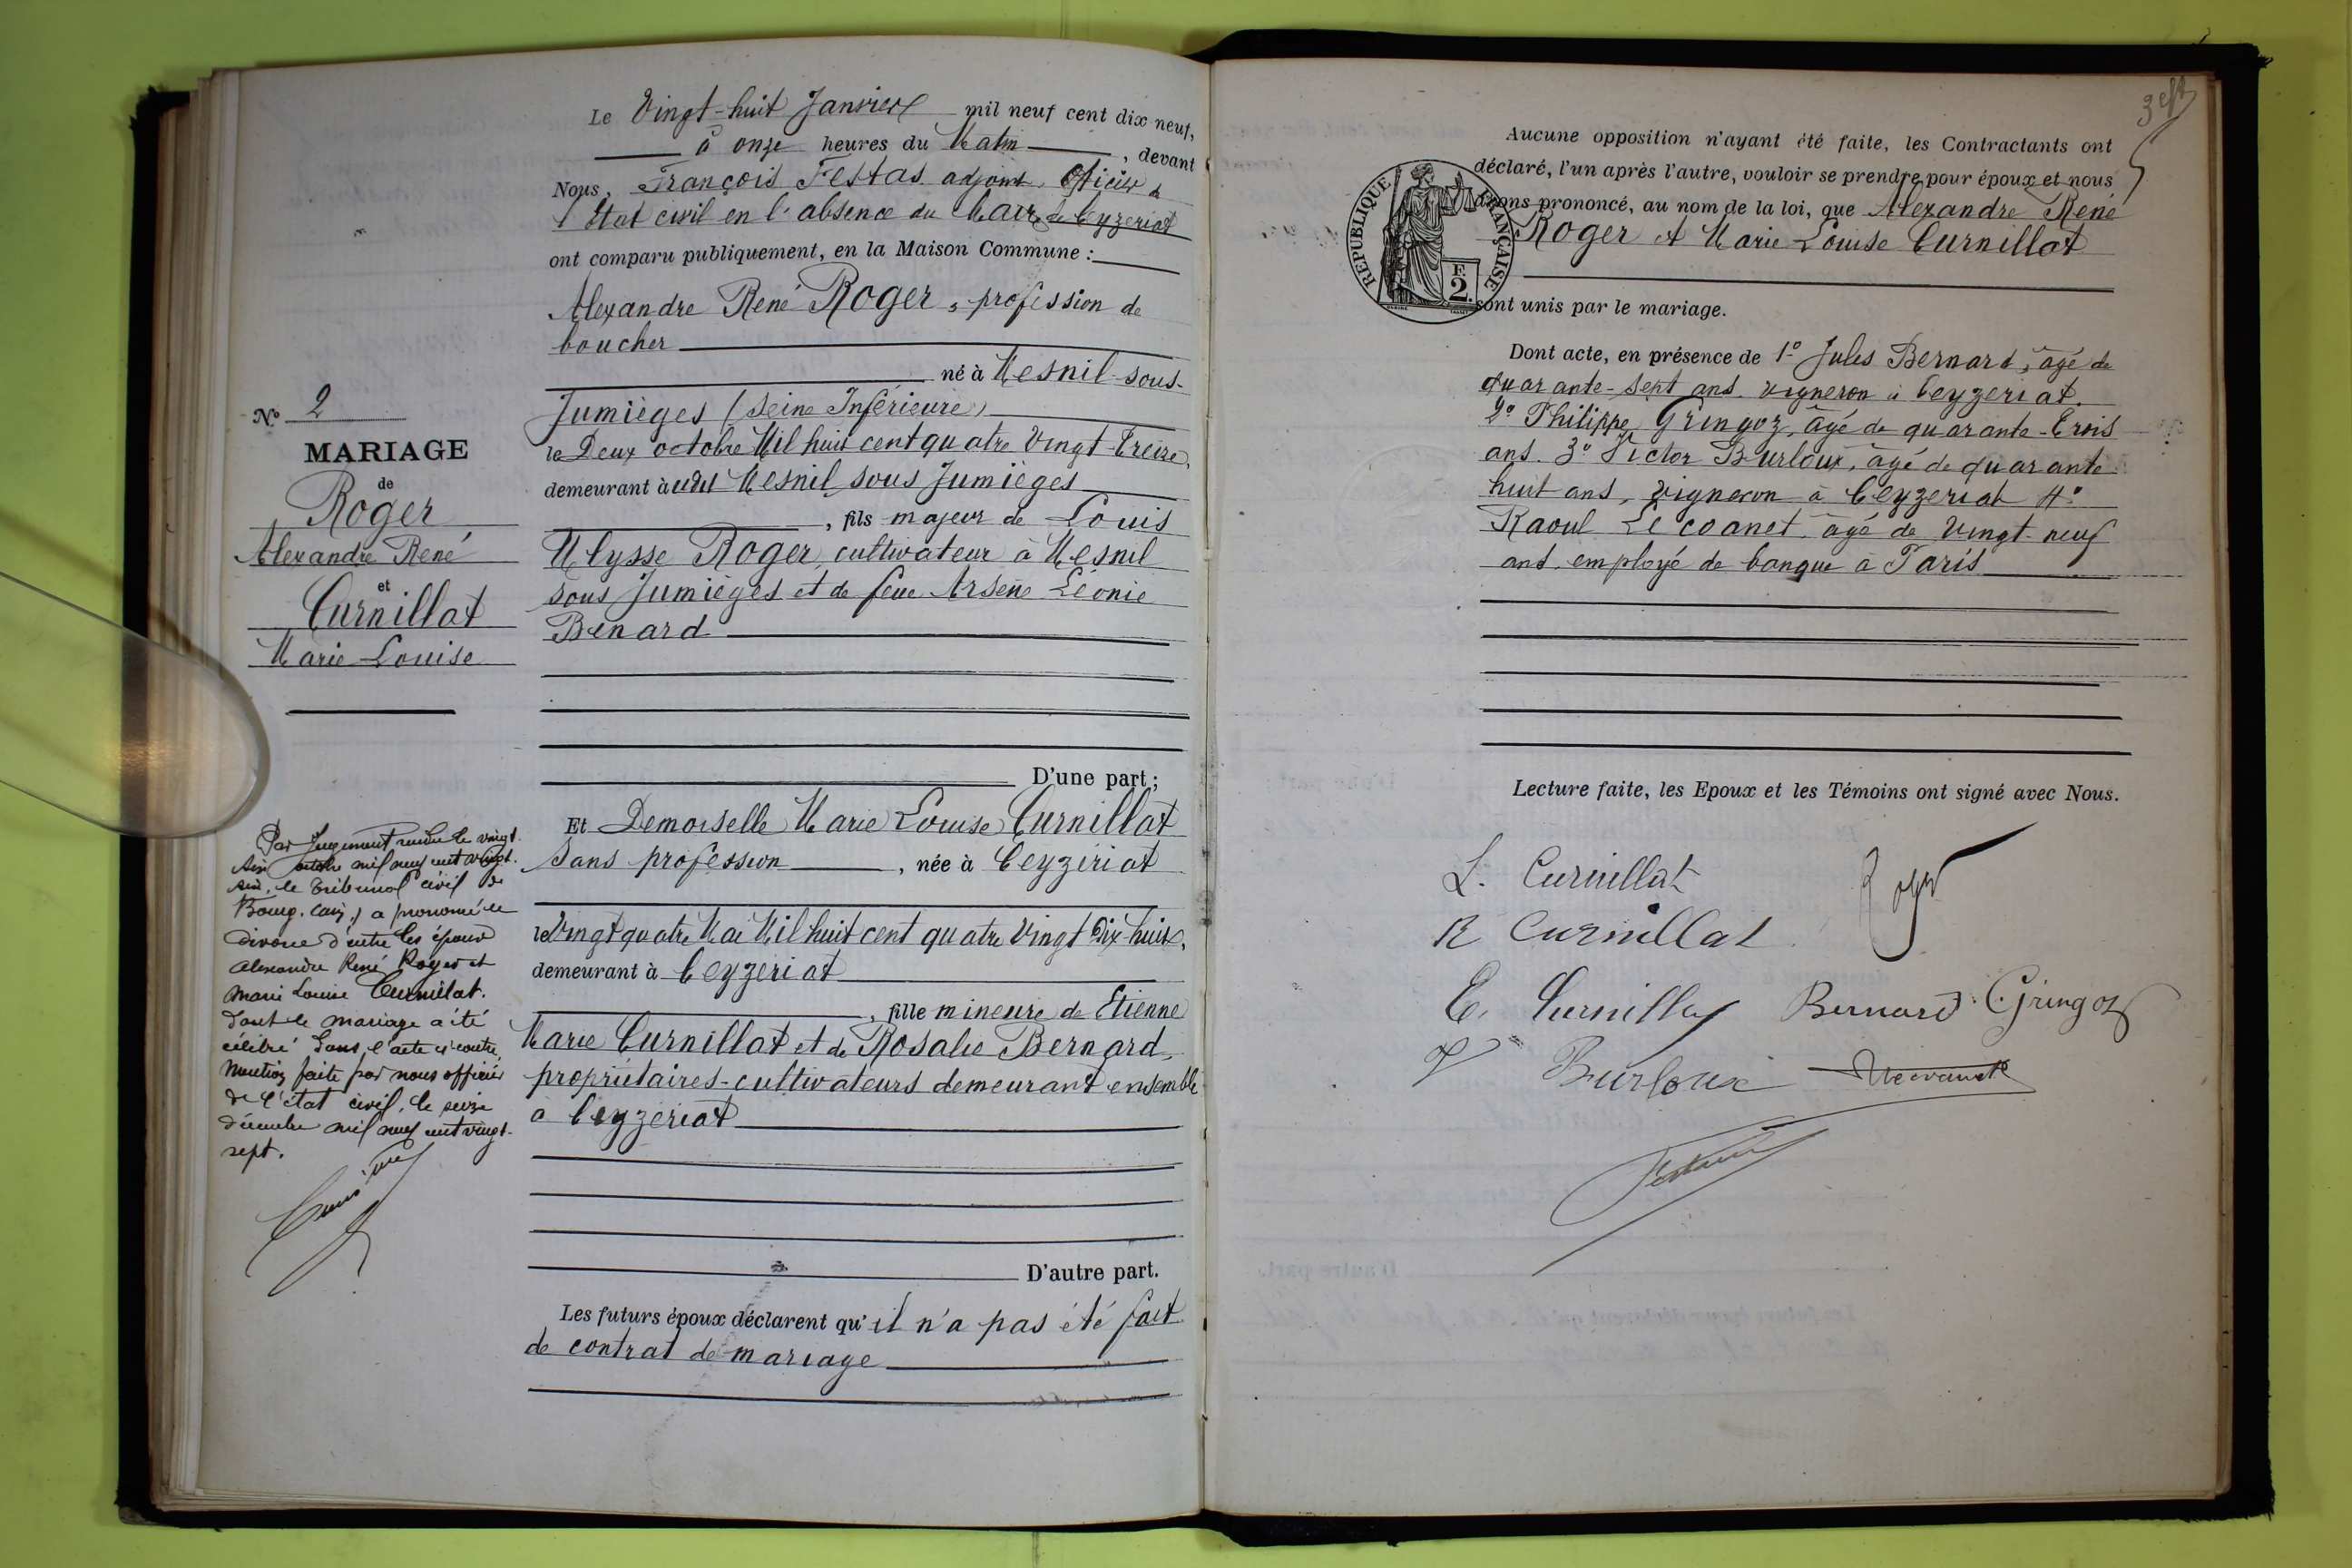 Nº 2
MARIAGE
de
Roger
Alexandre René
et
Curnillat
Marie Louise
Par Jugement rendu le vingt
six octobre mil neuf cent vingt
six, le Tribunal civil de
Bourg. (Ain.) a prononcé le
divorce d'entre les époux
Alexandre René Roger et
Marie Louise Curnillat.
dont le mariage a été
célébré dans l'acte ci contre,
Mention faite par nous officier
de l'état civil, le seize
décembre mil neuf cent vingt-
sept.
Le Vingt-huit Janvier mil neuf cent dix neuf,
à onze heures du Matin, devant
Nous, François Festas adjoint Officier de
l'Etat civil en l'absence du Maire de Ceyzeriat
ont comparu publiquement, en la Maison Commune :
Alexandre René Roger, profession de
boucher
né à Mesnil-sous-
Jumièges (Seine Inférieure)
le Deux octobre Mil huit cent quatre Vingt-treize,
demeurant à udit Mesnil sous Jumièges
, fils majeur de Louis
Ulysse Roger, cultivateur à Mesnil
sous Jumièges et de feue Arsène Léonie
Benard
D'une part ;
Et Demoiselle Marie Louise Curnillat
Sans profession, née à Ceyzériat
le Vingt quatre Mai Mil huit cent quatre Vingt Dix-huit,
demeurant à Ceyzeriat
, fille mineure de Etienne
Marie Curnillat et de Rosalie Bernard,
propriétaires-cultivateurs demeurant ensemble
à Ceyzeriat
D'autre part.
Les futurs époux déclarent qu' il n'a pas été fait
de contrat de mariage
Aucune opposition n'ayant été faite, les Contractants ont
déclaré, l'un après l'autre, vouloir se prendre pour époux et nous
avons prononcé, au nom de la loi, que Alexandre René
Roger et Marie Louise Curnillat
RÉPUBLIQUE FRANÇAISE
F.
2.
sont unis par le mariage.
Dont acte, en présence de 1º Jules Bernard, âgé de
quarante-sept ans. vigneron à Ceyzeriat.
2º Philippe Gringoz, âgé de quarante-trois
ans. 3º Victor Burloux, âgé de quarante
huit ans, vigneron à Ceyzeriat 4º
Raoul Le coanet âgé de vingt-neuf
ans employé de banque à Paris
Lecture faite, les Epoux et les Témoins ont signé avec Nous.
L. Curnillat
Roger
R Curnillat
E. Curnillat Bernard Gringoz
V Burloux